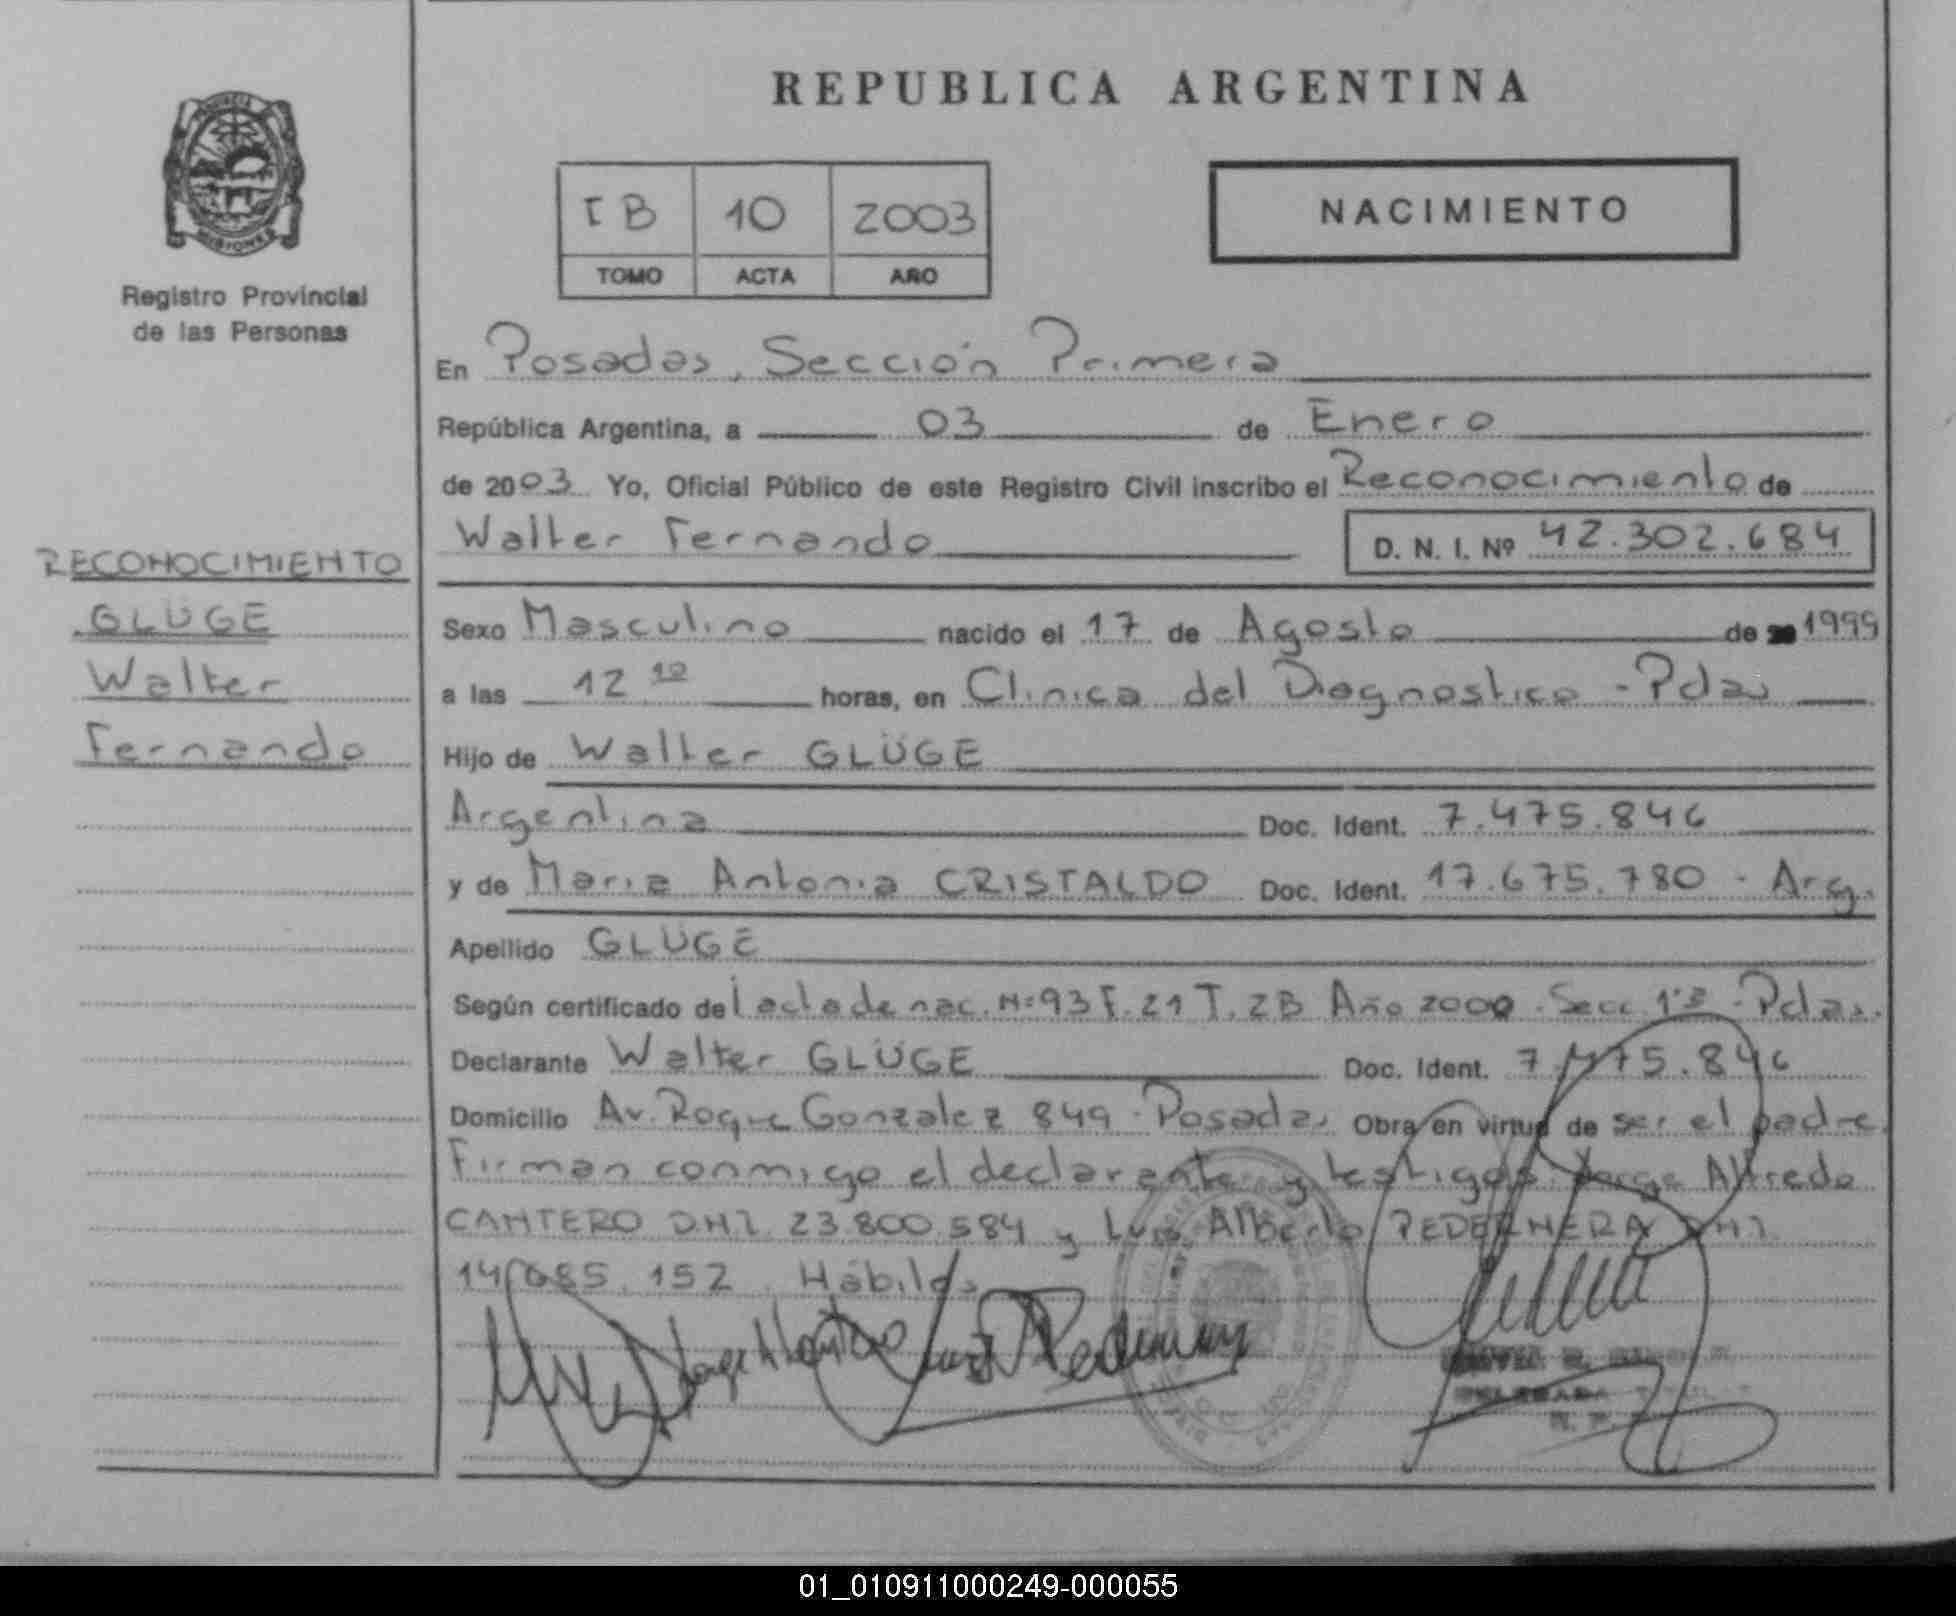 REPUBLICA ARGENTINA
PROVINCIA
MISIONES
Registro Provincial
de las Personas
I B 10 2003
TOMO ACTA AÑO
NACIMIENTO
En Posadas, Sección Primera
República Argentina, a 03 de Enero
de 2003 Yo, Oficial Público de este Registro Civil inscribo el Reconocimiento de
Walter Fernando D. N. I. Nº 42.302.684
RECONOCIMIENTO
GLÜGE
Walter
Fernando
Sexo Masculino nacido el 17 de Agosto de 1999
a las 12 10 horas, en Clinica del Diagnostico - Pdas
Hijo de Walter GLÜGE
Argentina Doc. Ident. 7.475.846
y de Maria Antonia CRISTALDO Doc. Ident. 17.675.780 - Arg.
Apellido GLÜGE
Según certificado de acta de nac. Nº 93 F. 21 T. 2B Año 2000 - Secc. 1ra - Pdas.
Declarante Walter GLÜGE Doc. Ident. 7.475.846
Domicilio Av. Roque Gonzalez 849 - Posadas Obra en virtud de ser el padre.
Firman conmigo el declarante y testigos Jorge Alfredo
CANTERO DNI. 23.800.584 y Luis Alberto PEDERNERA DNI
14.685.152. Hábiles
01_010911000249-000055